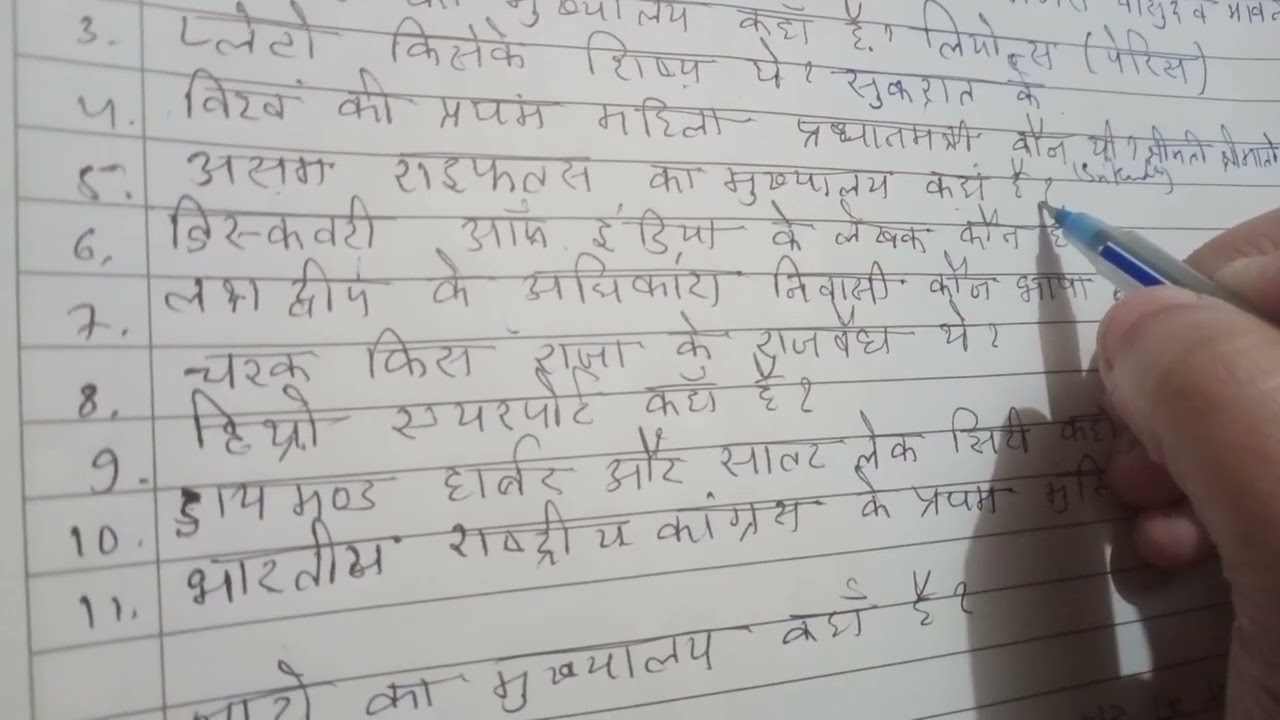 का मुख्यालय कहाँ है? लियोन्स (पेरिस)
3. प्लेटो किसके शिष्य थे? सुकरात के
4. विश्व की प्रथम महिला प्रधानमंत्री कौन थी? श्रीमती
5. असम राइफल्स का मुख्यालय कहाँ है?
6. डिस्कवरी ऑफ इंडिया के लेखक कौन है
7. लक्षद्वीप के अधिकांश निवासी कौन भाषा
8. चरक किस राजा के राजवैध थे?
9. हिथ्रो एयरपोर्ट कहाँ है?
10. डायमण्ड हार्बर और साल्ट लेक सिटी कहाँ
11. भारतीय राष्ट्रीय कांग्रेस के प्रथम
का मुख्यालय कहाँ है?